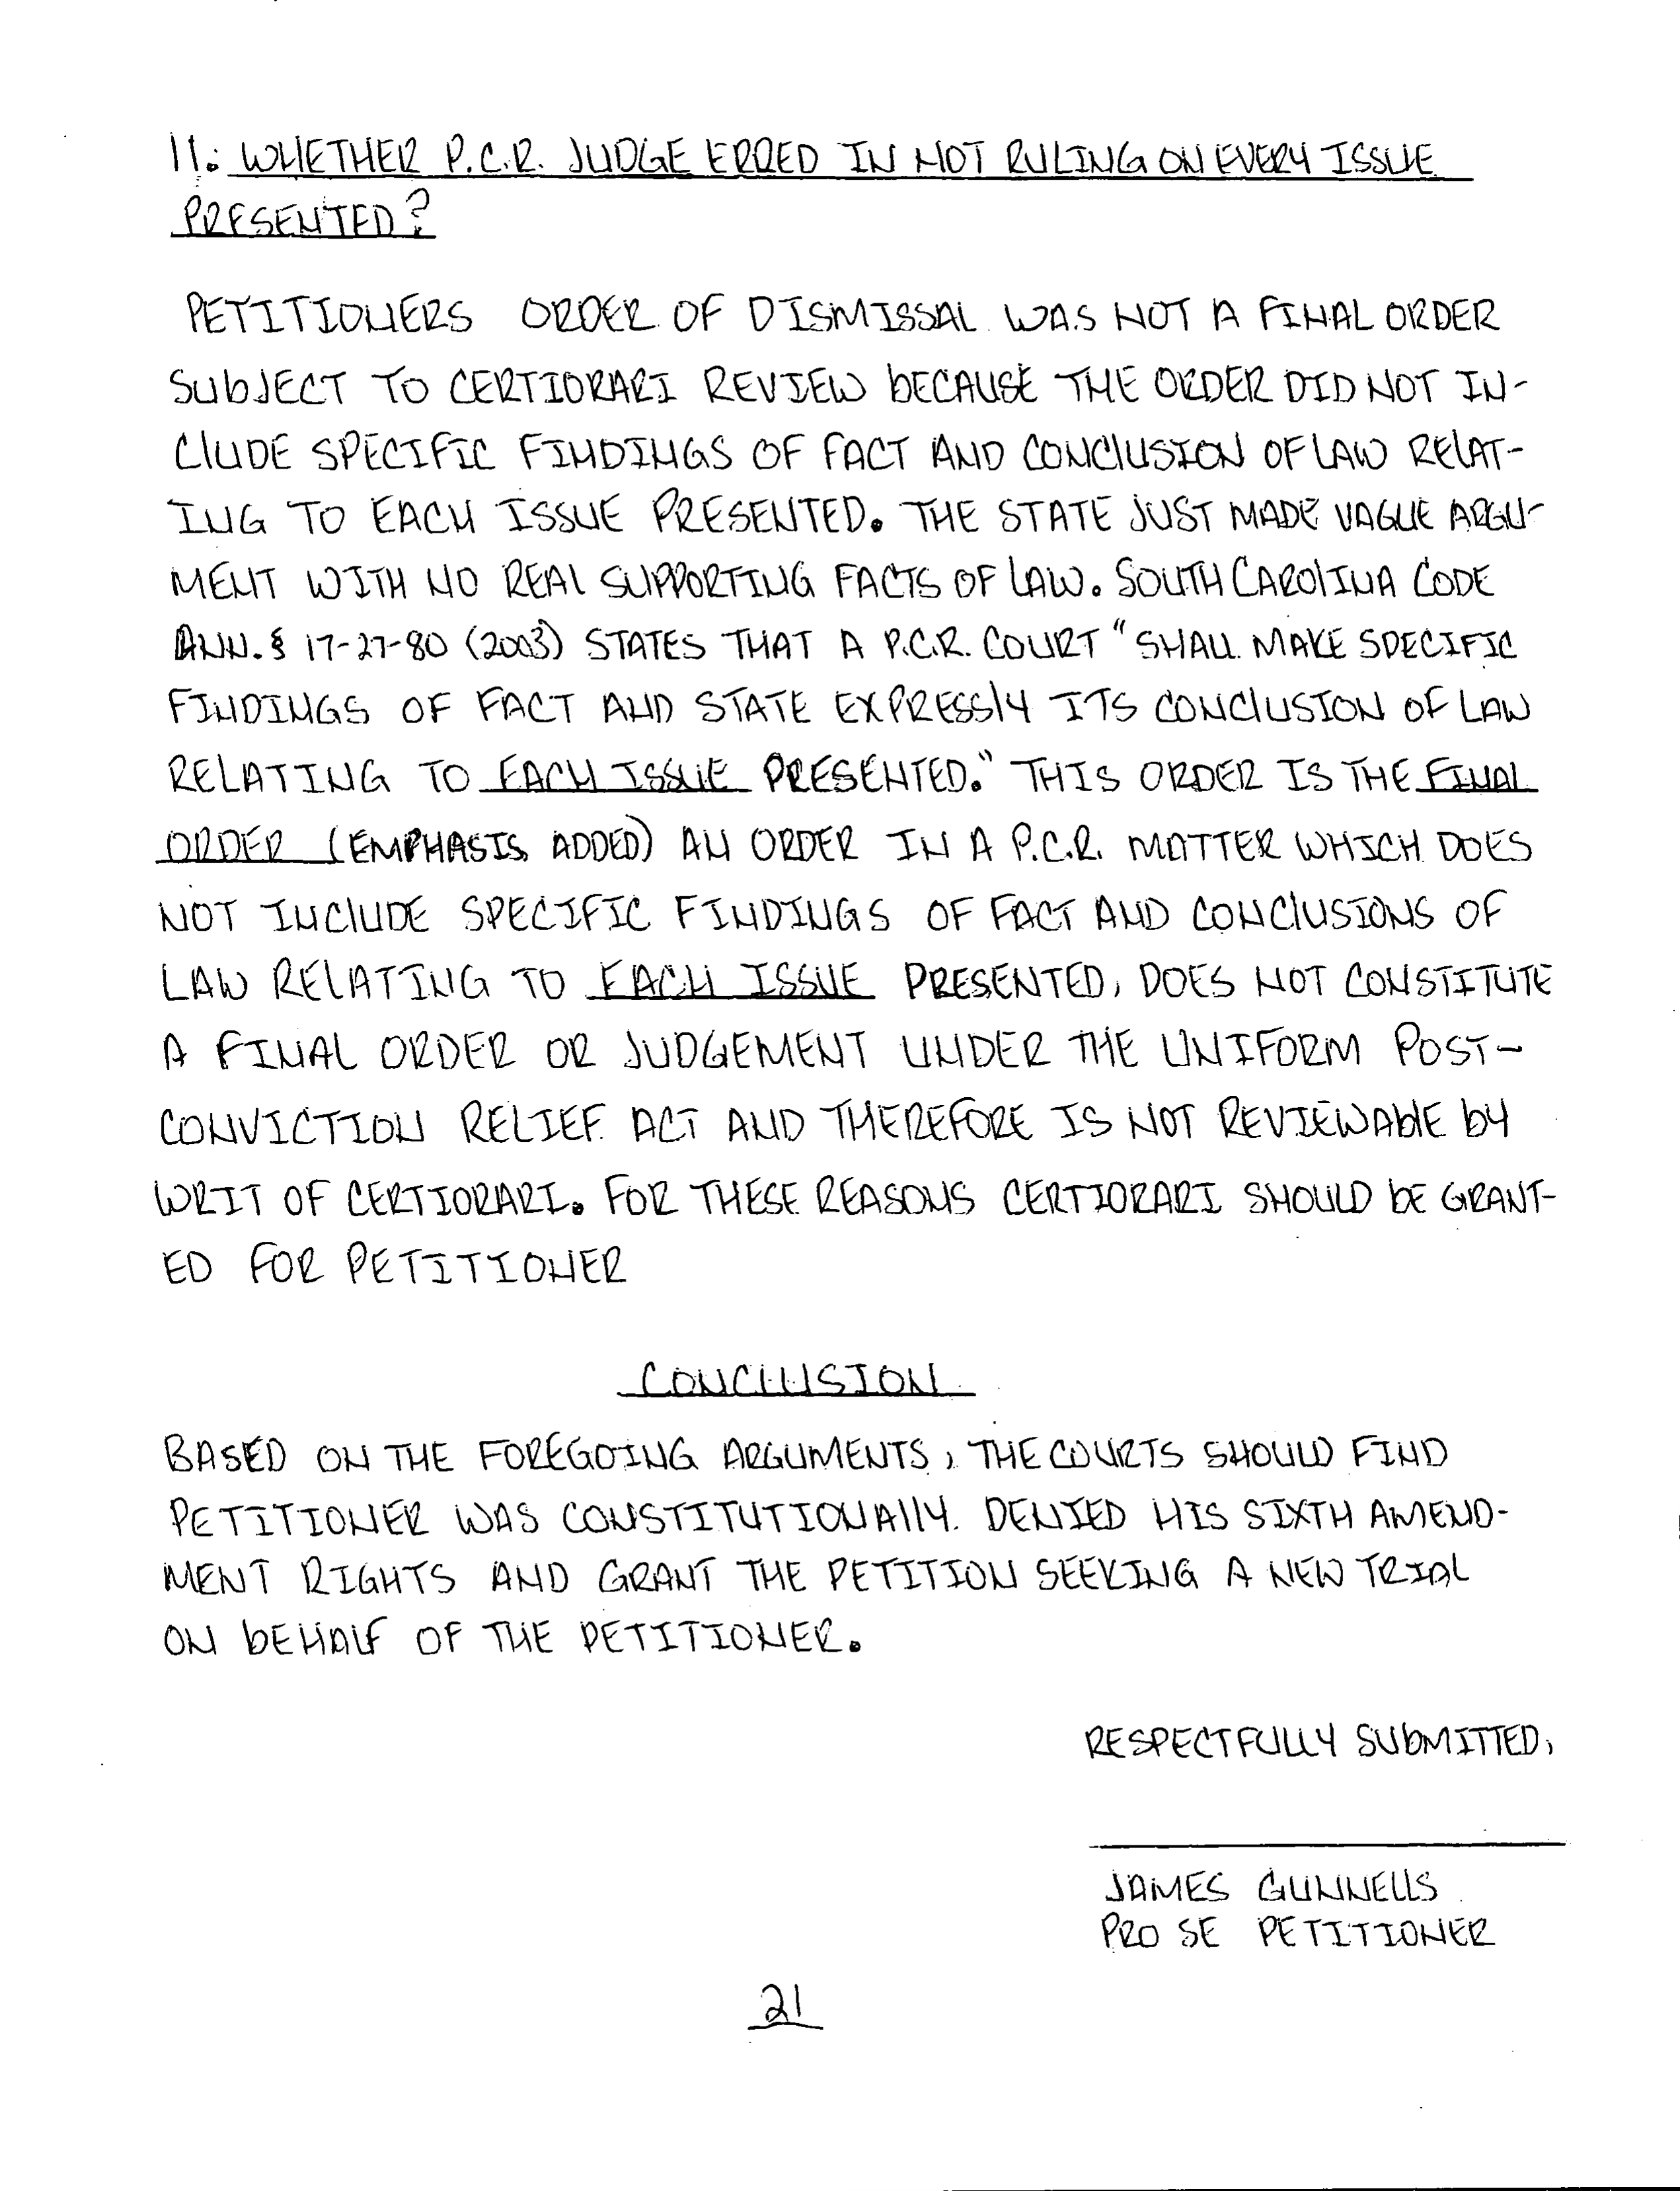 11. WHETHER P.C.R. JUDGE ERRED IN NOT RULING ON EVERY ISSUE
PRESENTED?
PETITIONERS ORDER OF DISMISSAL WAS NOT A FINAL ORDER
SUBJECT TO CERTIORARI REVIEW BECAUSE THE ORDER DID NOT IN-
CLUDE SPECIFIC FINDINGS OF FACT AND CONCLUSION OF LAW RELAT-
ING TO EACH ISSUE PRESENTED. THE STATE JUST MADE VAGUE ARGU-
MENT WITH NO REAL SUPPORTING FACTS OF LAW. SOUTH CAROLINA CODE
ANN. § 17-27-80 (2003) STATES THAT A P.C.R. COURT "SHALL MAKE SPECIFIC
FINDINGS OF FACT AND STATE EXPRESSLY ITS CONCLUSION OF LAW
RELATING TO EACH ISSUE PRESENTED." THIS ORDER IS THE FINAL
ORDER (EMPHASIS ADDED) AN ORDER IN A P.C.R. MATTER WHICH DOES
NOT INCLUDE SPECIFIC FINDINGS OF FACT AND CONCLUSIONS OF
LAW RELATING TO EACH ISSUE PRESENTED, DOES NOT CONSTITUTE
A FINAL ORDER OR JUDGEMENT UNDER THE UNIFORM POST-
CONVICTION RELIEF ACT AND THEREFORE IS NOT REVIEWABLE BY
WRIT OF CERTIORARI. FOR THESE REASONS CERTIORARI SHOULD BE GRANT-
ED FOR PETITIONER
CONCLUSION
BASED ON THE FOREGOING ARGUMENTS, THE COURTS SHOULD FIND
PETITIONER WAS CONSTITUTIONALLY DENIED HIS SIXTH AMEND-
MENT RIGHTS AND GRANT THE PETITION SEEKING A NEW TRIAL
ON BEHALF OF THE PETITIONER.
RESPECTFULLY SUBMITTED,
JAMES GUNNELLS
PRO SE PETITIONER
21